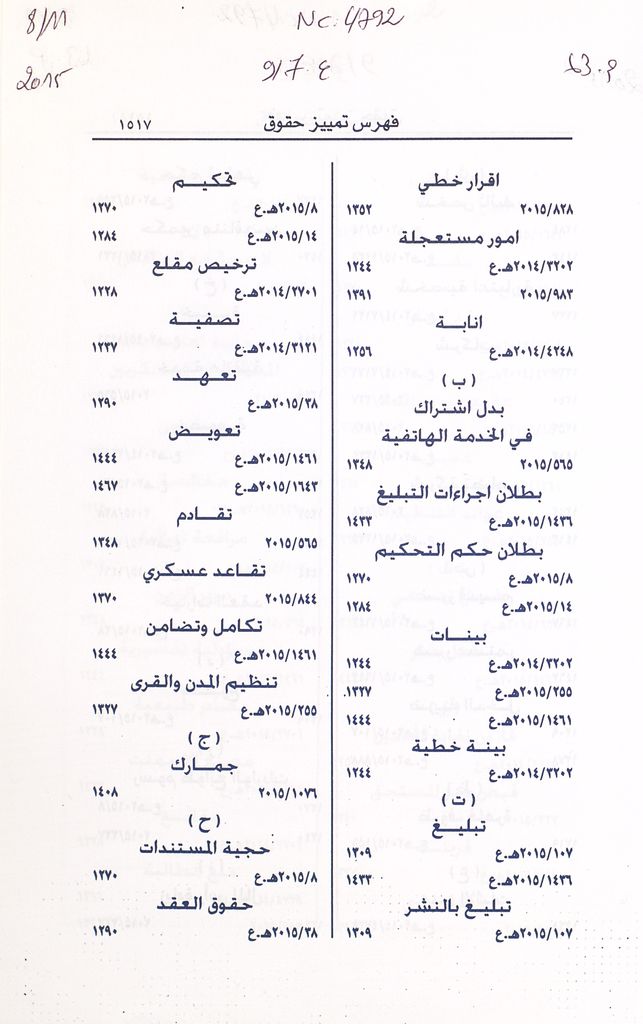 8/11
Nc. 4792
2015
9/7 ع
فهرس تمييز حقوق
١٥١٧
اقرار خطي
٢٠١٥/٨٢٨ ١٣٥٢
امور مستعجلة
٢٠١٤/٣٢٠٢هـ.ع ١٢٤٤
٢٠١٥/٩٨٣ ١٣٩١
انابة
٢٠١٤/٤٢٤٨هـ.ع ١٢٥٦
( ب )
بدل اشتراك
في الخدمة الهاتفية
٢٠١٥/٥٦٥ ١٣٤٨
بطلان اجراءات التبليغ
٢٠١٥/١٤٣٦هـ.ع ١٤٣٣
بطلان حكم التحكيم
٢٠١٥/٨هـ.ع ١٢٧٠
٢٠١٥/١٤هـ.ع ١٢٨٤
بينات
٢٠١٤/٣٢٠٢هـ.ع ١٢٤٤
٢٠١٥/٢٥٥هـ.ع ١٣٢٧.
٢٠١٥/١٤٦١هـ.ع ١٤٤٤
بينة خطية
٢٠١٤/٣٢٠٢هـ.ع ١٢٤٤
( ت )
تبليغ
٢٠١٥/١٠٧هـ.ع ١٣٠٩
٢٠١٥/١٤٣٦هـ.ع ١٤٣٣
تبليغ بالنشر
٢٠١٥/١٠٧هـ.ع ١٣٠٩
تحكيم
٢٠١٥/٨هـ.ع ١٢٧٠
٢٠١٥/١٤هـ.ع ١٢٨٤
ترخيص مقلع
٢٠١٤/٢٧٠١هـ.ع ١٢٢٨
تصفية
٢٠١٤/٣١٢١هـ.ع ١٢٣٧
تعهد
٢٠١٥/٣٨هـ.ع ١٢٩٠
تعويض
٢٠١٥/١٤٦١هـ.ع ١٤٤٤
٢٠١٥/١٦٤٣هـ.ع ١٤٦٧
تقادم
٢٠١٥/٥٦٥ ١٣٤٨
تقاعد عسكري
٢٠١٥/٨٤٤ ١٣٧٠
تكامل وتضامن
٢٠١٥/١٤٦١هـ.ع ١٤٤٤
تنظيم المدن والقرى
٢٠١٥/٢٥٥هـ.ع ١٣٢٧
( ج )
جمارك
٢٠١٥/١٠٧٦ ١٤٠٨
( ح )
حجية المستندات
٢٠١٥/٨هـ.ع ١٢٧٠
حقوق العقد
٢٠١٥/٣٨هـ.ع ١٢٩٠